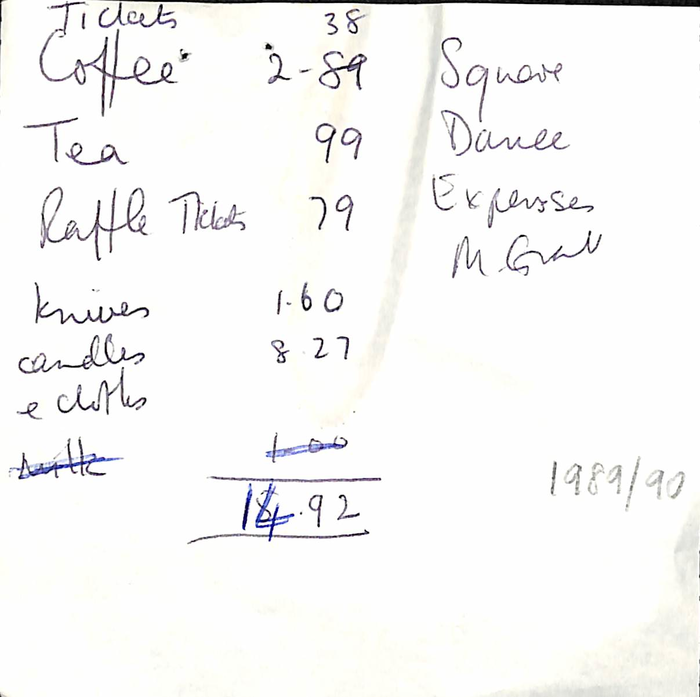 Tickets 38
Coffee 2-89
Tea 99
Raffle Tickets 79
Knives 1.60
candles 8.27
e cloths
milk 1 00
14.92
Square
Dance
Expenses
M.
1989/90